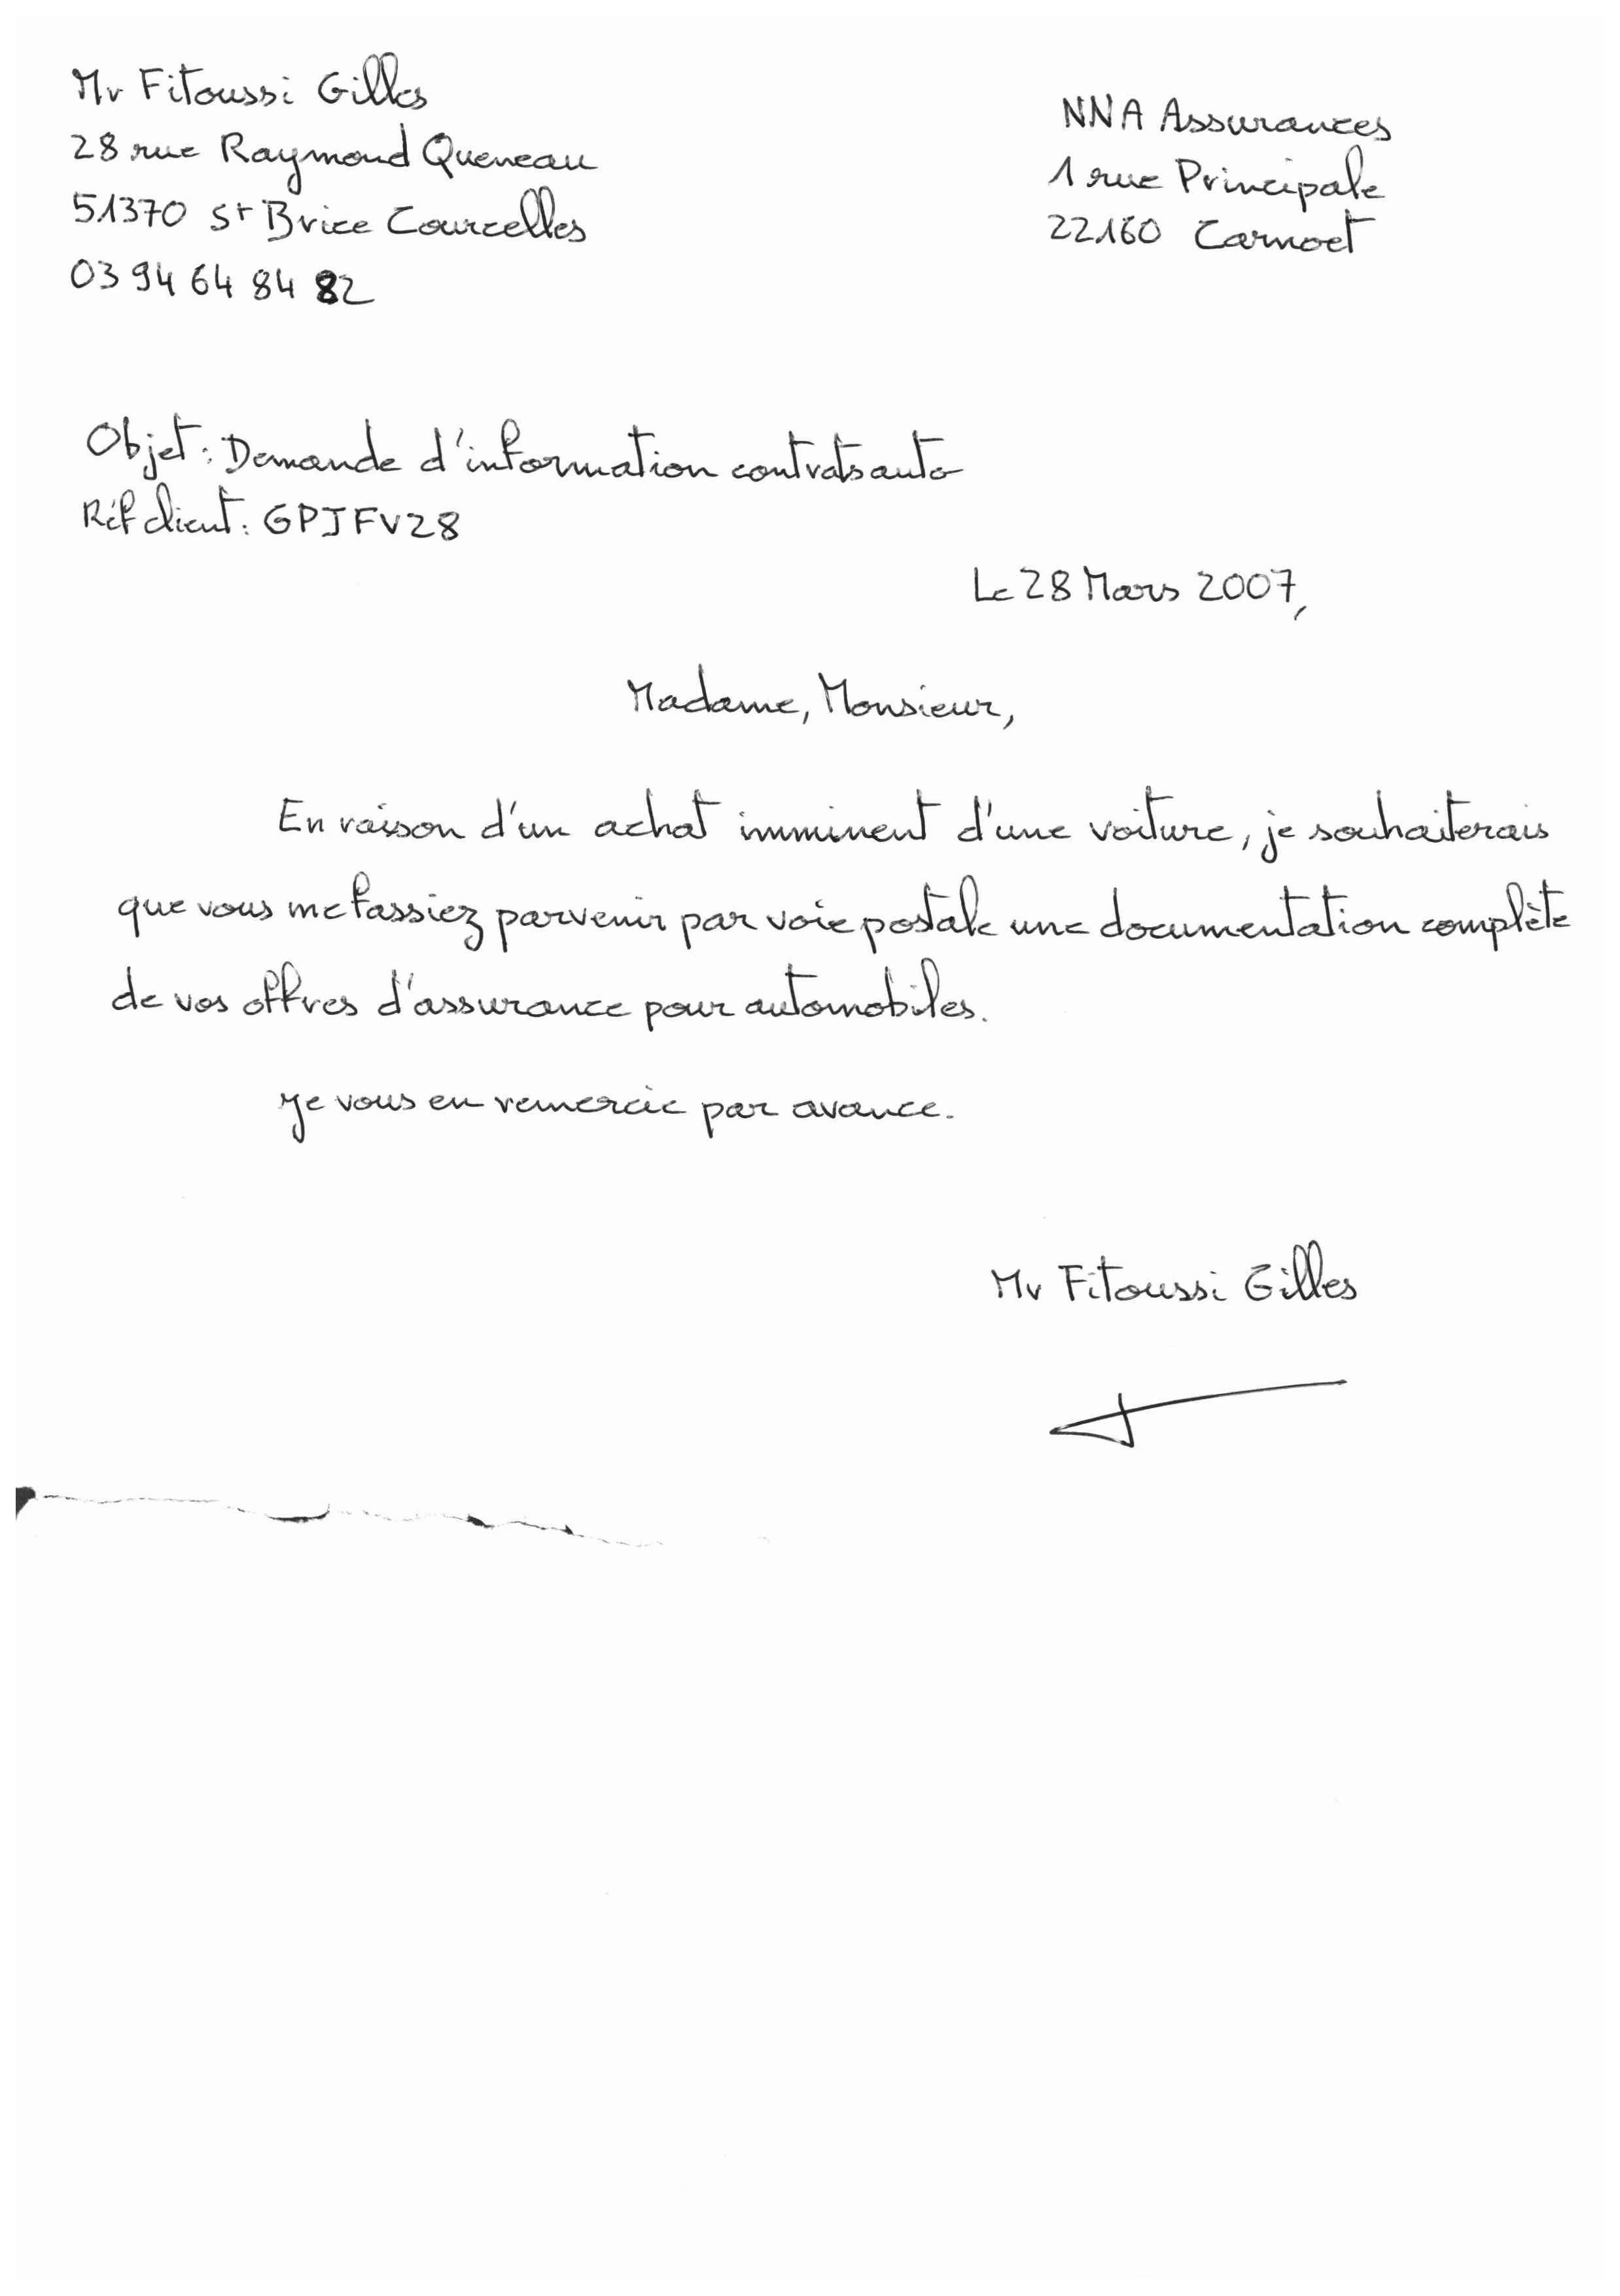 Mr Fitoussi Gilles
28 rue Raymond Queneau
51370 St Brice Courcelles
03 94 64 84 82
NNA Assurances
1 rue Principale
22160 Carnoet
Objet : Demande d'information contrats auto
Réf client : GPJFV28
Le 28 Mars 2007,
Madame, Monsieur,
En raison d'un achat imminent d'une voiture, je souhaiterais
que vous me fassiez parvenir par voie postale une documentation complète
de vos offres d'assurance pour automobiles.
Je vous en remercie par avance.
Mr Fitoussi Gilles